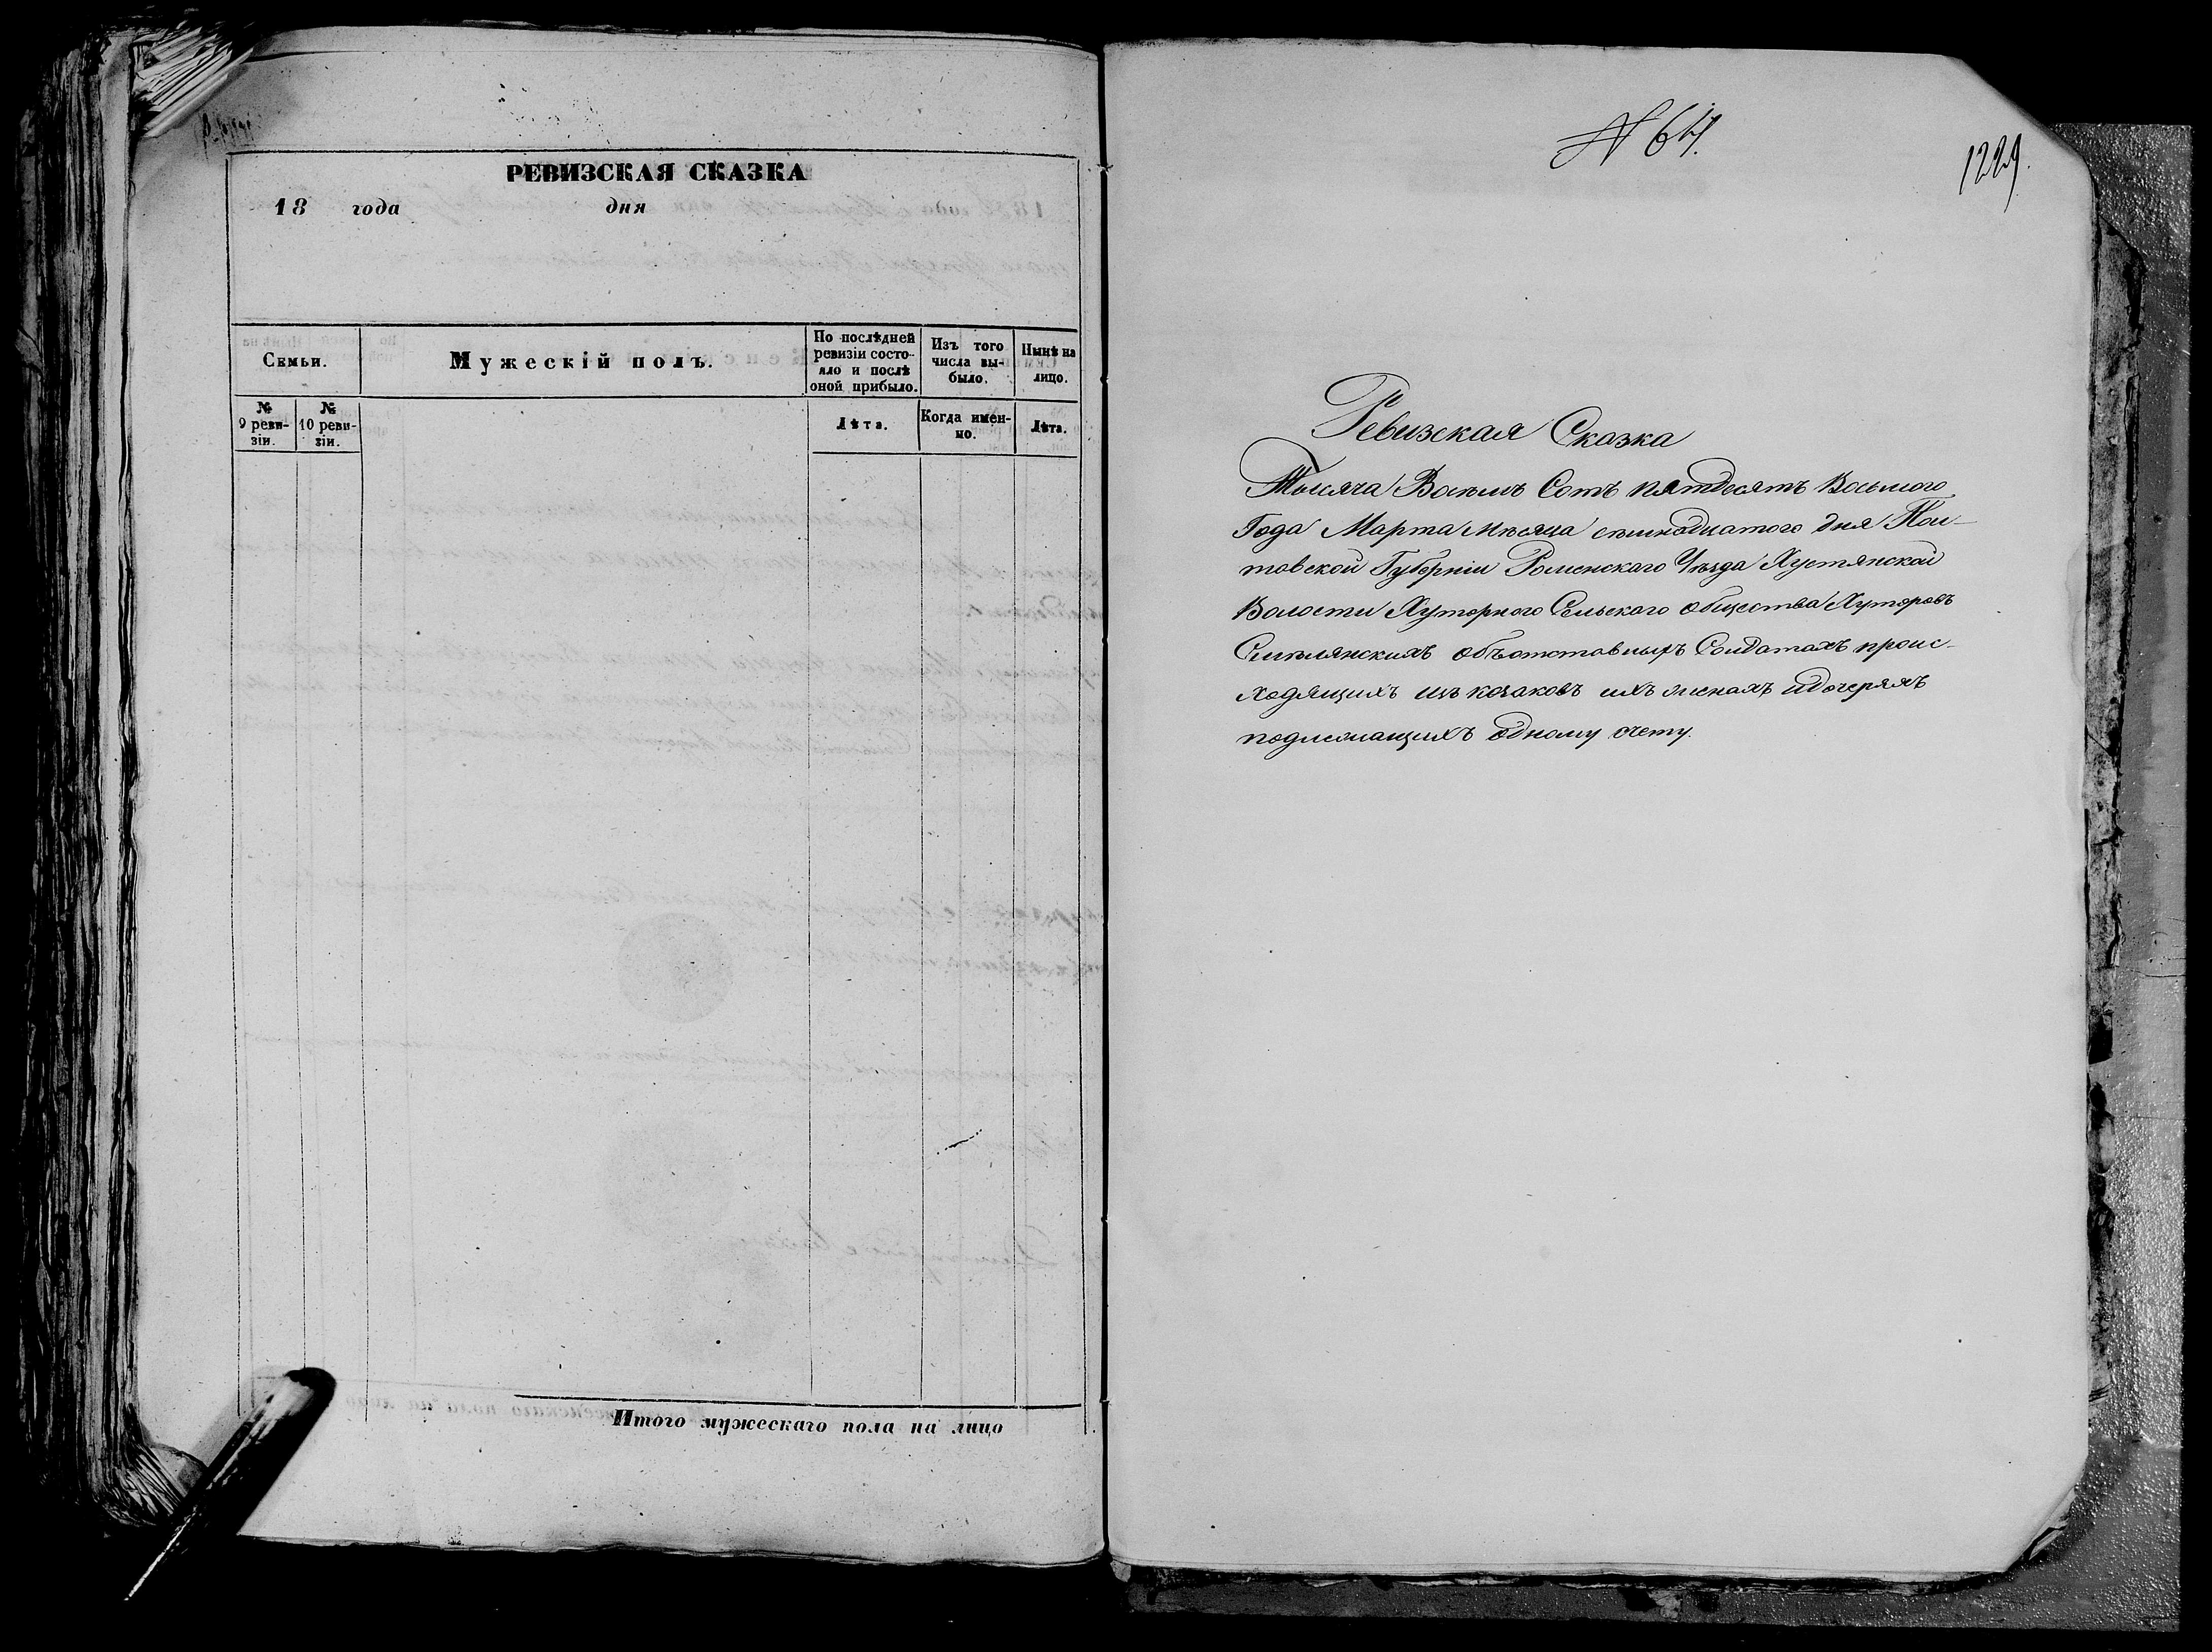 РЕВИЗСКАЯ СКАЗКА
18 года дня
Семьи.
Мужескій полъ.
По послѣдней ревизіи состояло и послѣ оной прибыло.
Изъ того числа выбыло.
Нынѣ на лицо.
№ 9 ревизіи.
№ 10 ревизіи.
Лѣта.
Когда именно.
Лѣта.
Итого мужескаго пола на лицо
1229.
Ревизская Сказка
Тысяча Восемь Сотъ пятдесятъ Восьмого
Года Марта Мѣсяца семнадцатого дня Пол-
тавской Губерніи Роменскаго Уѣзда Хустянской
Волости Хуторного Сельскаго общества Хуторовъ
Смѣлянскихъ объ отставныхъ Солдатахъ проис-
ходящихъ изъ козаковъ ихъ женахъ и дочеряхъ
подлежащихъ одному счету.